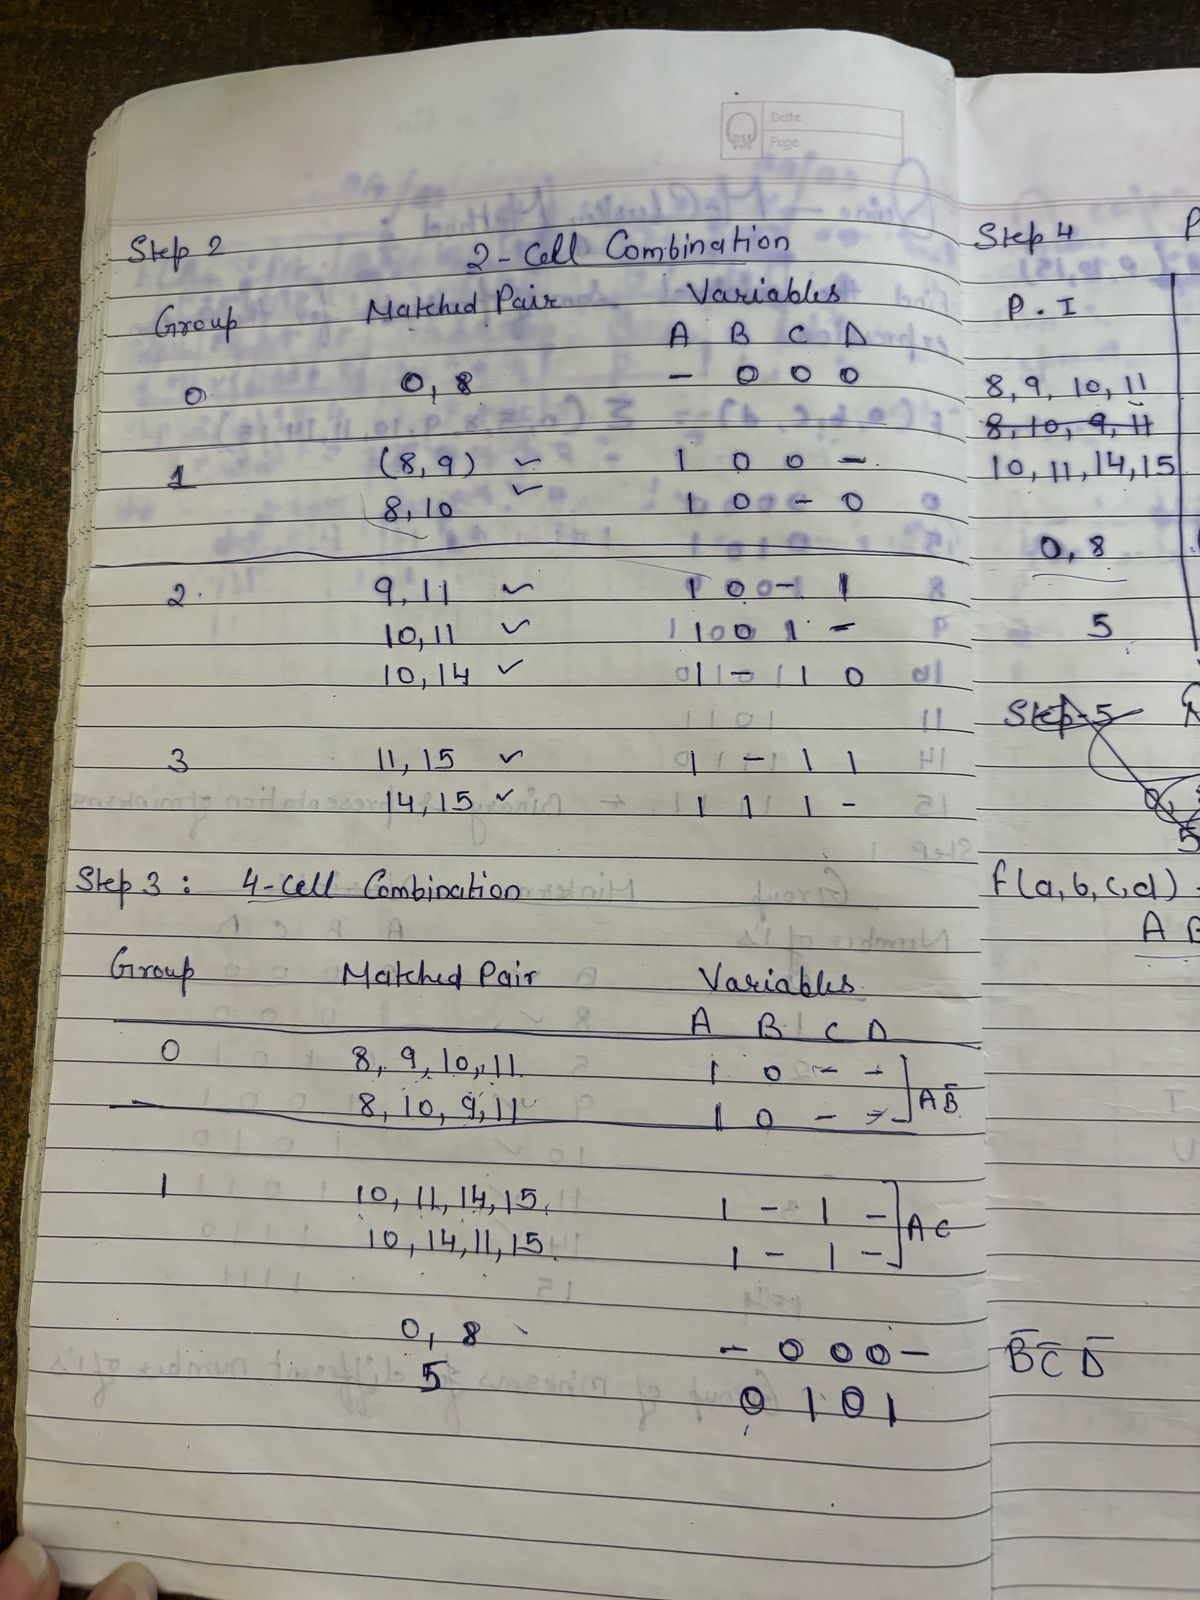 Date
Page
Step 2
2-Cell Combination
Group Matched Pair Variables
A B C D
0 0, 8 - 0 0 0
1 (8, 9) ✓ 1 0 0 -
8, 10 ✓ 1 0 - 0
2. 9, 11 ✓ 1 0 - 1
10, 11 ✓ 1 0 1 -
10, 14 ✓ 1 - 1 0
3 11, 15 ✓ 1 - 1 1
14, 15 ✓ 1 1 1 -
Step 3 : 4-Cell Combination
Group Matched Pair Variables
A B C D
0 8, 9, 10, 11 1 0 - -
8, 10, 9, 11 1 0 - - AB̅
1 10, 11, 14, 15 1 - 1 -
10, 14, 11, 15 1 - 1 - AC
0, 8 - 0 0 0 - B̅ C̅ D̅
5 0 1 0 1
Step 4 P
P.I
8, 9, 10, 11
8, 10, 9, 11
10, 11, 14, 15
0, 8
5
Step-5
5
f(a, b, c, d)
A B